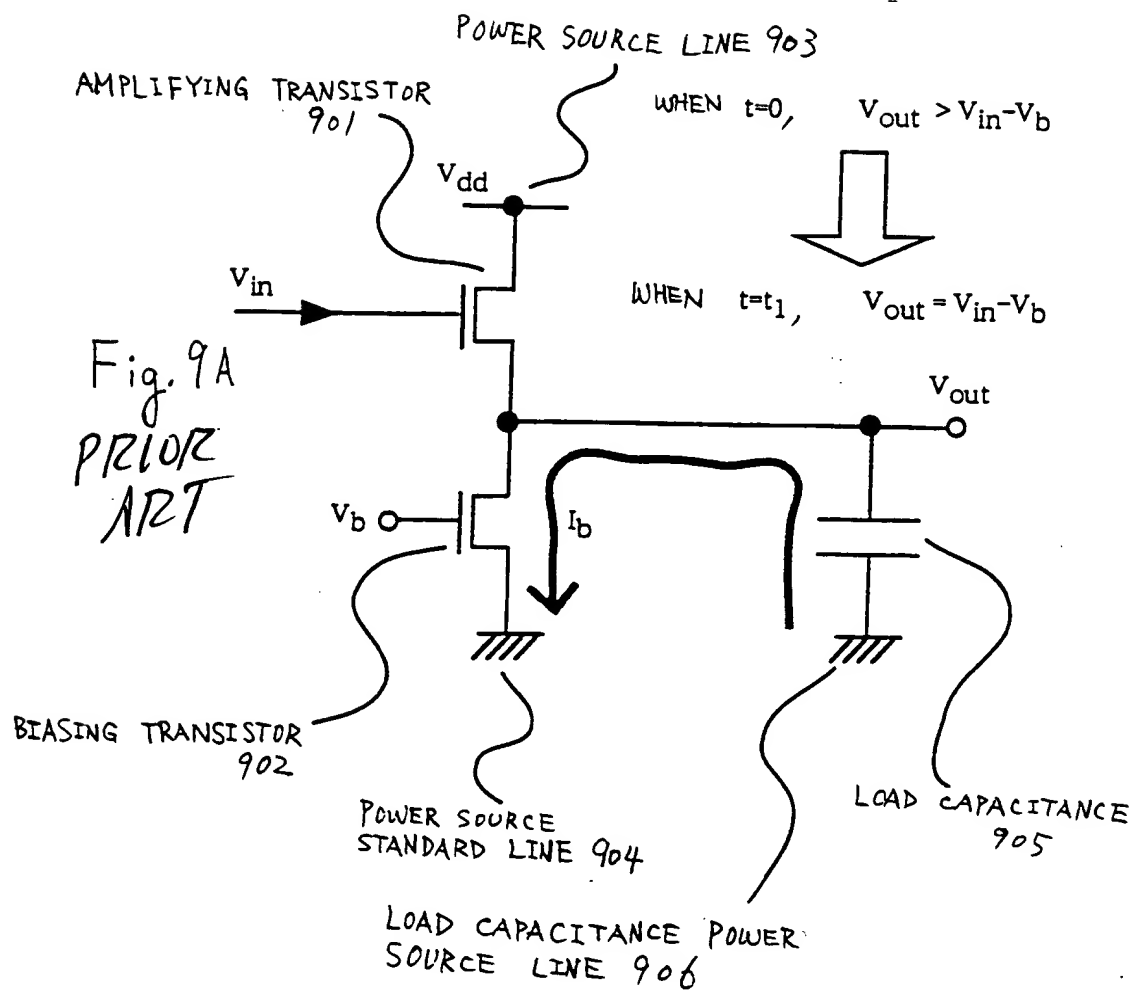 POWER SOURCE LINE 903
AMPLIFYING TRANSISTOR
901
WHEN t=0, Vout > Vin-Vb
Vdd
Vin
WHEN t=t1, Vout = Vin-Vb
Fig. 9A
PRIOR
ART
Vout
Vb
Ib
BIASING TRANSISTOR
902
POWER SOURCE
STANDARD LINE 904
LOAD CAPACITANCE
905
LOAD CAPACITANCE POWER
SOURCE LINE 906